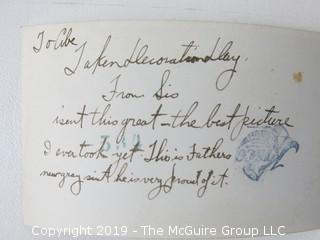 To Abe
Taken Decoration Day.
From Sis
isent this great - the best picture
334
I ever took yet. This is Fathers
new gray suit he is very proud of it.
Copyright 2019 - The McGuire Group, LLC